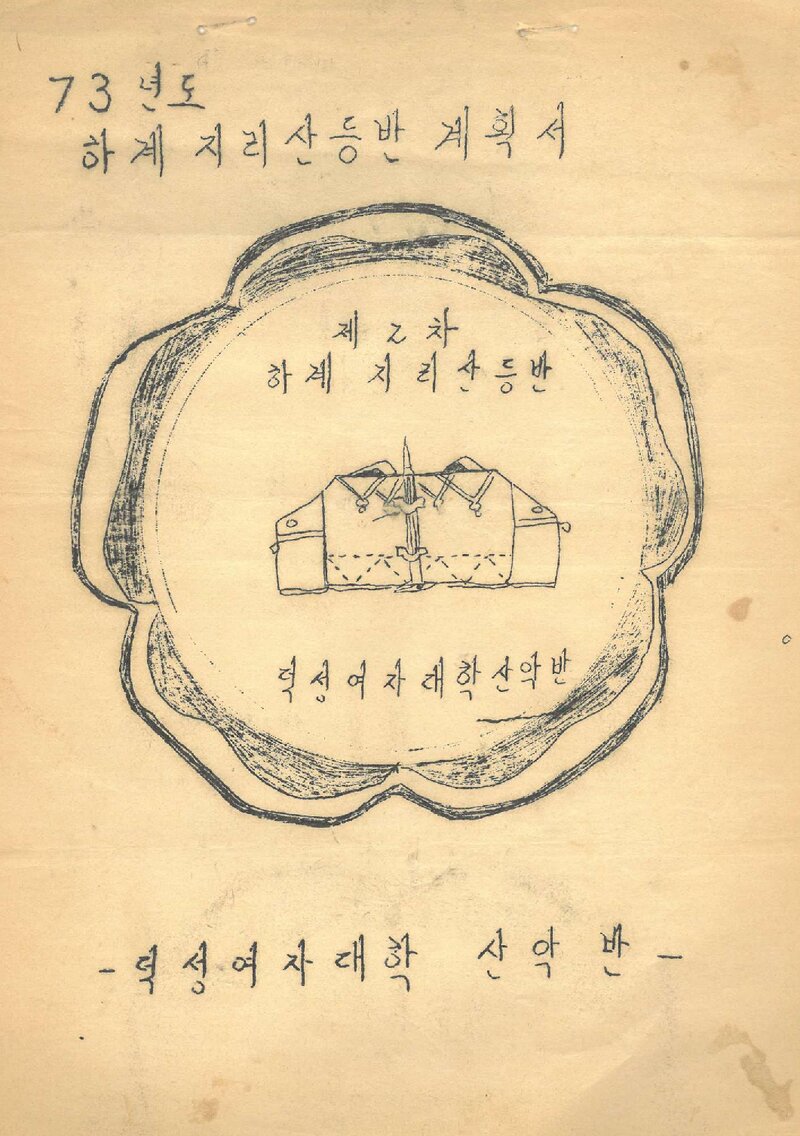 73년도
하계 지리산등반 계획서
제 2 차
하계 지리산등반
덕성여자대학산악반
-덕성여자대학 산악 반-